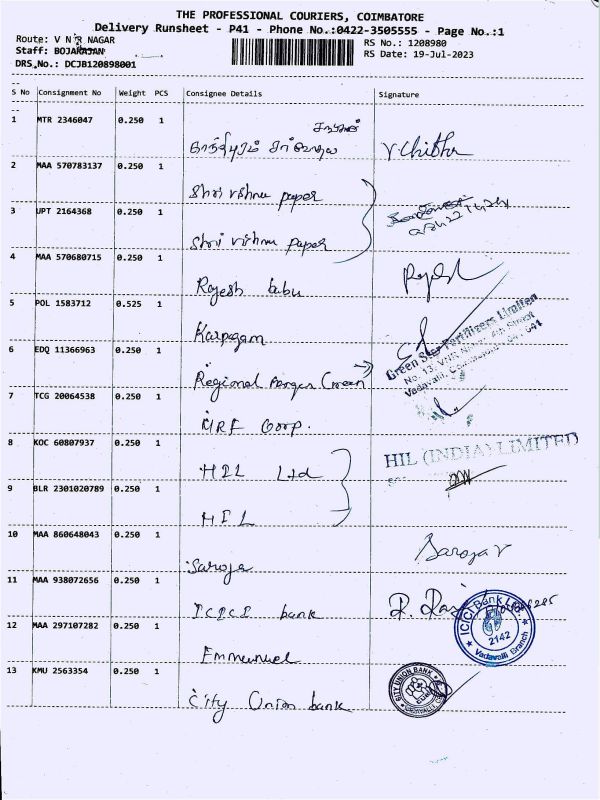 THE PROFESSIONAL COURIERS, COIMBATORE
Delivery Runsheet - P41 - Phone No.:0422-3505555 - Page No.:1
Route: V N R NAGAR
RS No.: 1208980
Staff: BOJARAJAN
RS Date: 19-Jul-2023
DRS No.: DCJB120898001
S No Consignment No Weight PCS Consignee Details Signature
1 MTR 2346047 0.250 1
V. Chitra
2 MAA 570783137 0.250 1
Shri vishnu paper
3 UPT 2164368 0.250 1
Shri vishnu paper
4 MAA 570680715 0.250 1
Rajesh babu
5 POL 1583712 0.525 1
Karpagam
Green Star Fertilizers Limited
6 EDQ 11366963 0.250 1
Regional Manger Green
7 TCG 20064538 0.250 1
MRF Corp.
8 KOC 60807937 0.250 1
HIL (INDIA) LIMITED
HIL Ltd
9 BLR 2301020789 0.250 1
HIL
10 MAA 860648043 0.250 1
Saroja V
Saroja
11 MAA 938072656 0.250 1
ICICI bank
ICICI Bank Ltd.
2142
Vadavalli Branch
12 MAA 297107282 0.250 1
Emmanuel
13 KMU 2563354 0.250 1
CITY UNION BANK
City Union bank